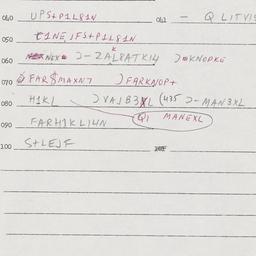 040 UPS+P1L81N 041 - Q LITVIS
050 C1NE,JFS+P1L81N
060 NEX )-2AL8ATK14 )=KNOPKE
070 FAR$MAXN7 )FARKNOP+
080 H1KL )VAJB3XL (435 )-MAN3XL
090 FARH1KL14N Q1 MANEXL
100 S+LEJF